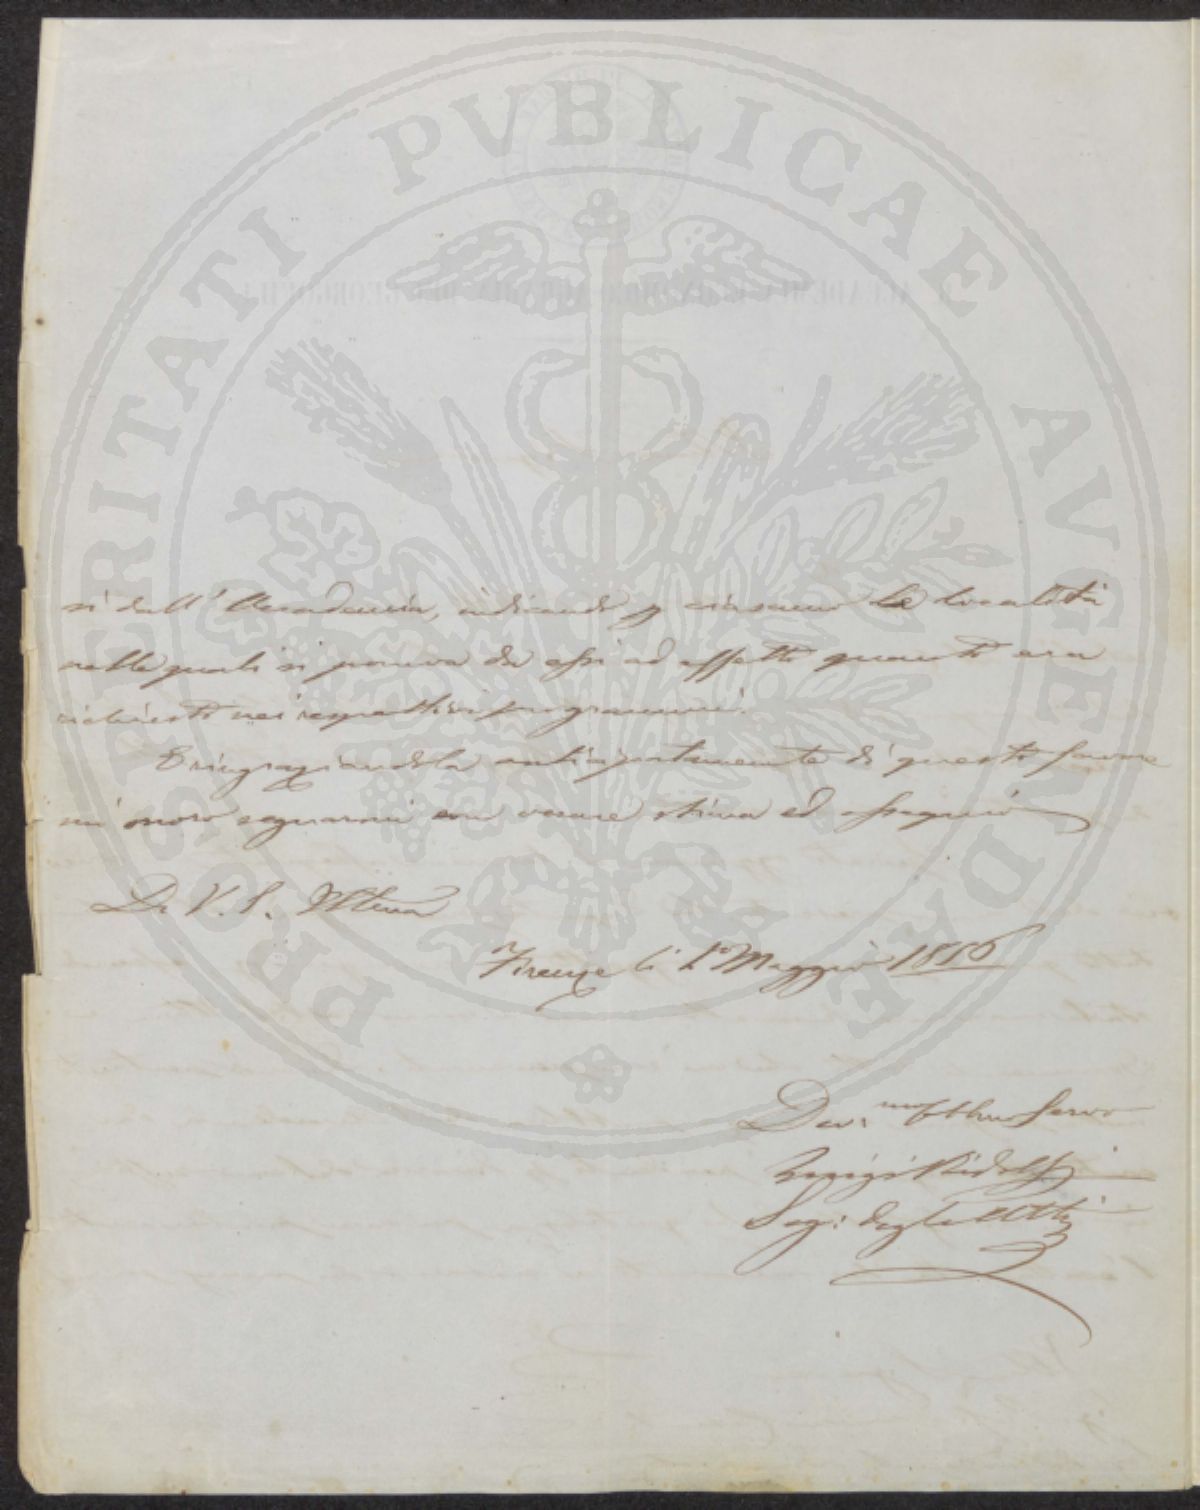 PROSPERITATI PVBLICAE AVGENDAE
R. ACCADEMIA ECONOMICO-AGRARIA DEI GEORGOFILI
si dall'Accademia, indicando p ciascuno le località
nelle quali si poneva da essi ad effetto quanto era
richiesto nei respettivi programmi.
E ringraziandola anticipatamente di questo favore
mi onoro segnarmi con verace stima ed ossequio
Di V. S. Illma
Firenze li 1º Maggio 1856
Dev.mo Obbmo Servo
Luigi Ridolfi
Seg: degli Atti